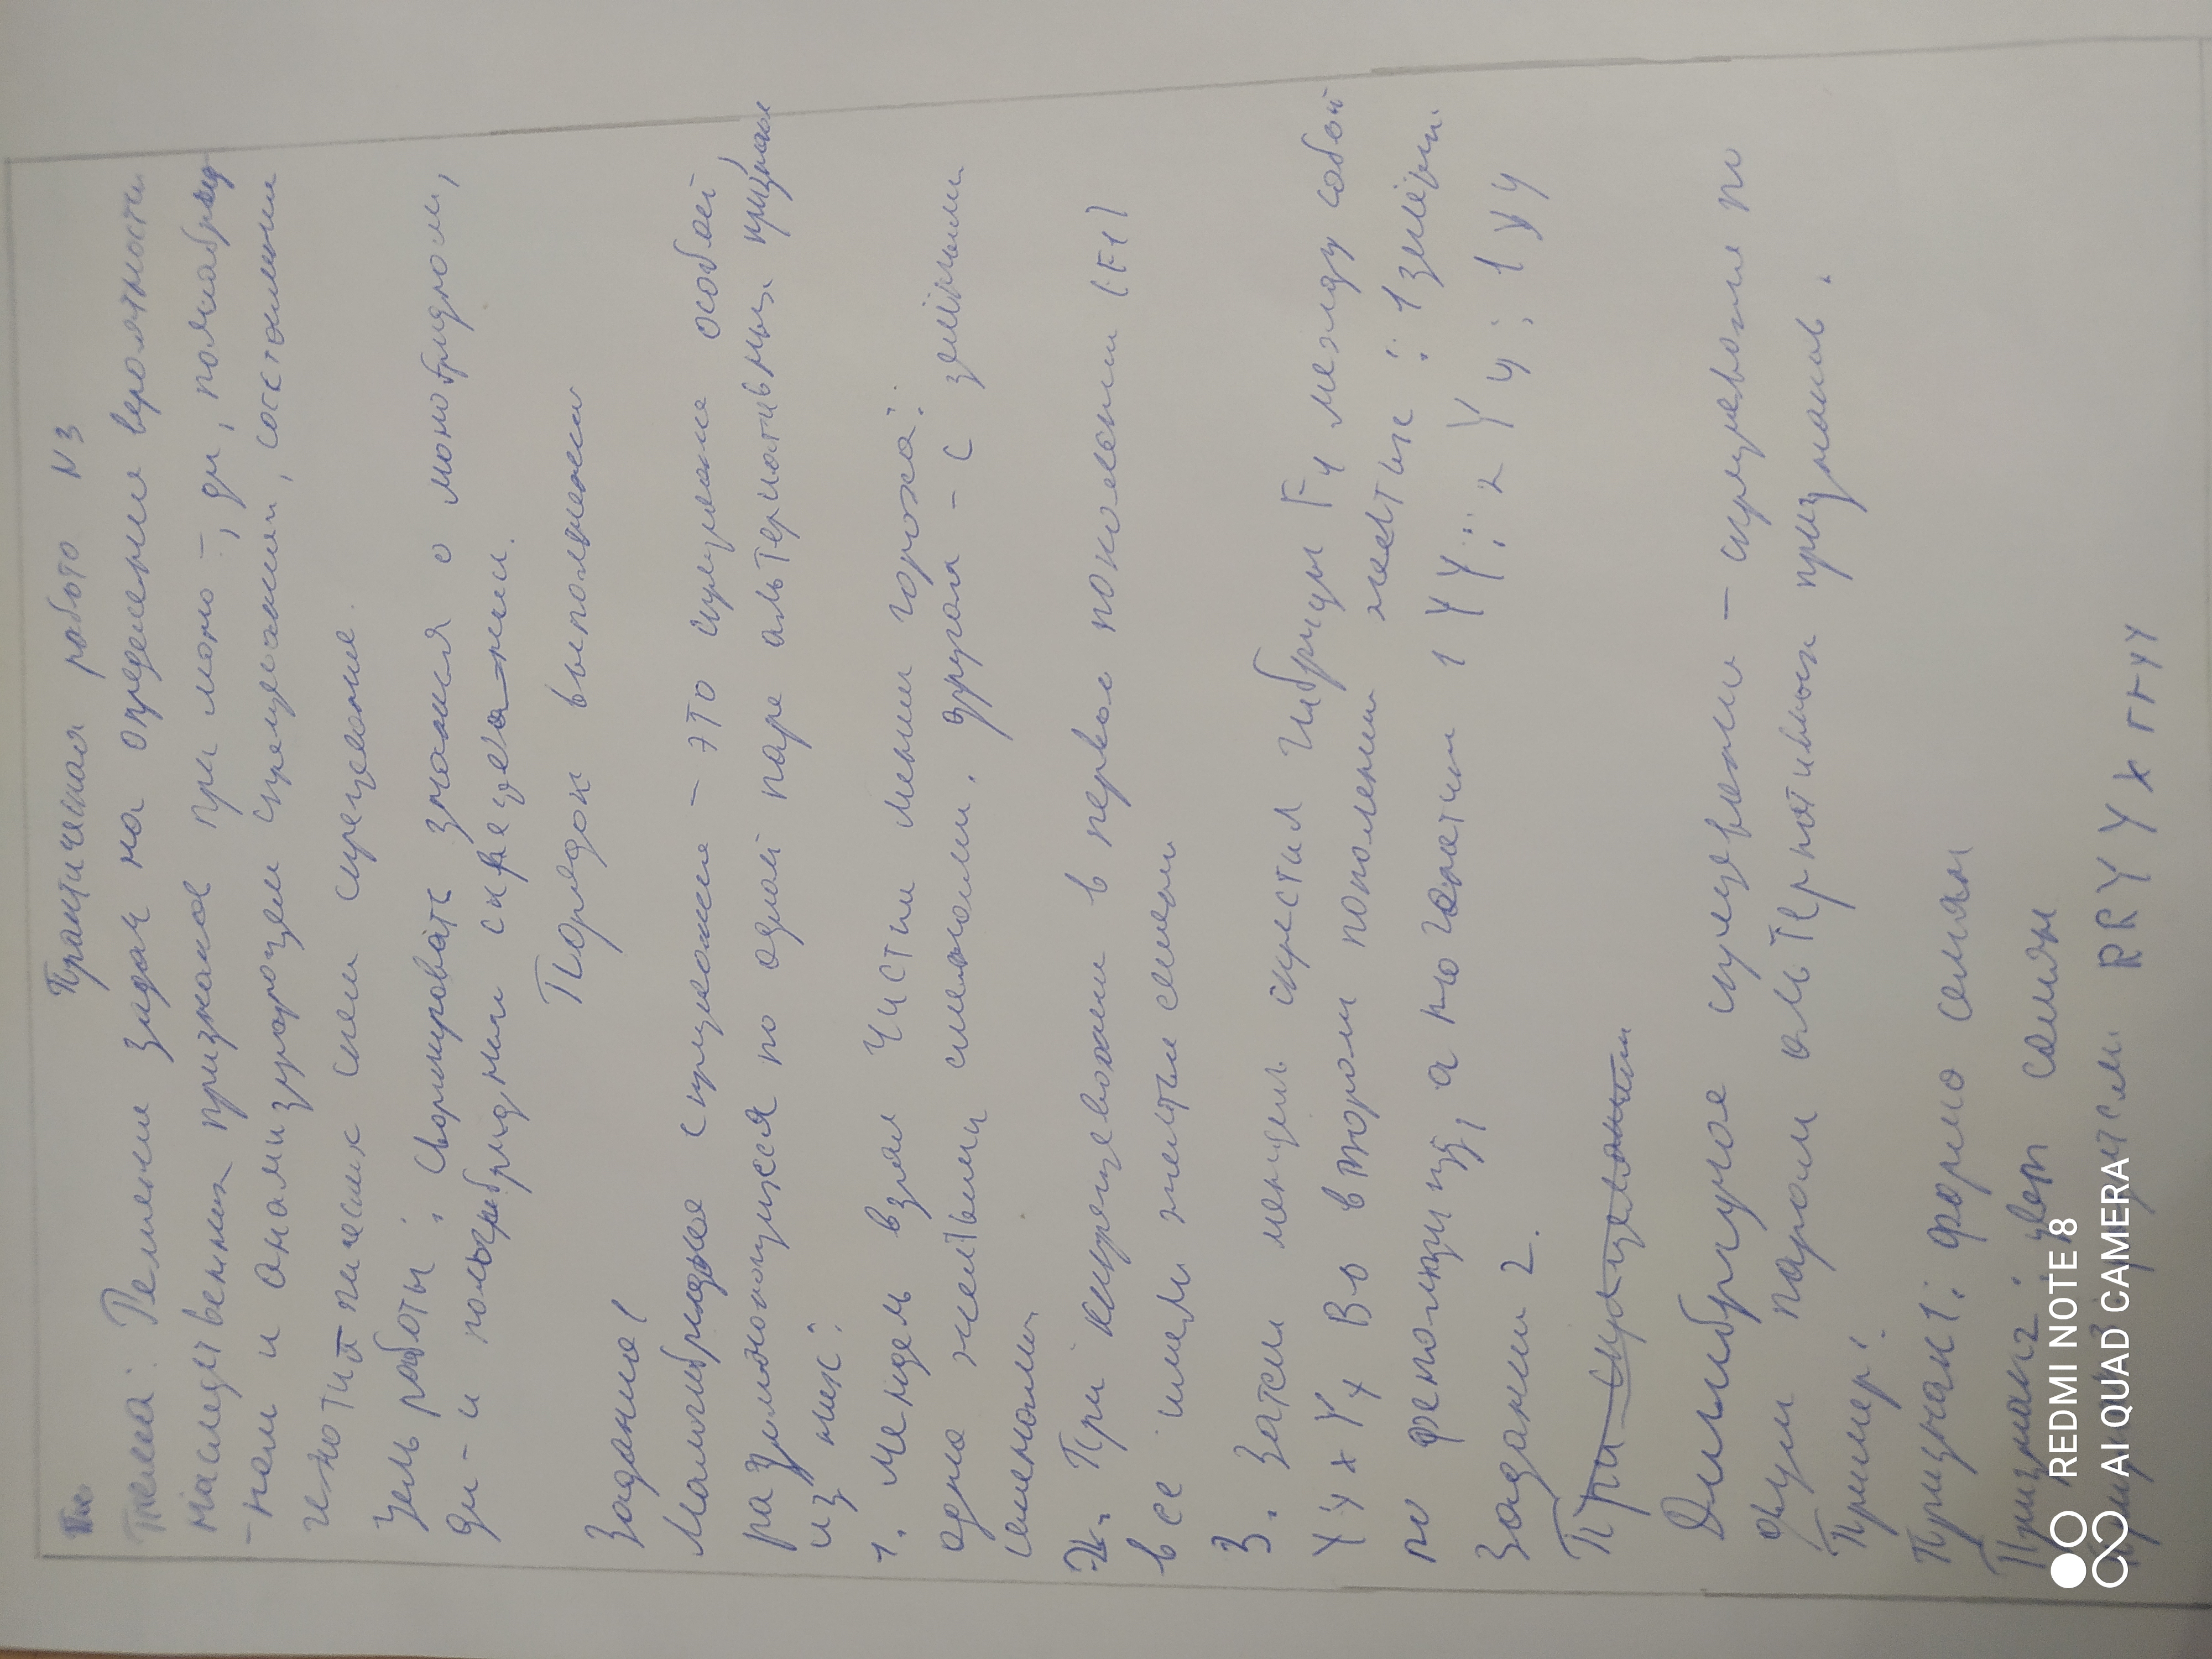 Практическая робото N3
Тема: Решение задач на определение вероятности
наследственных признаков при моно-, ди, полигибрид
-ном и анализирующем скрещивании, составление
генотипических схем скрещивание.
Цель работы: Сформировать знания о моногибридном,
ди- и полигибридном скрещивании.
Порядок выполнения
Задание 1
Моногибридное скрещивание - это скрещивание особей,
различающихся по одной паре альтернативных признаков
из них:
1. Мендель взял чистые линии гороха:
одна желтыми семенами, другая - с зелёными
семенами.
2. При скрещивании в первом поколении (F1)
все имели желтые семена
3. Затем мендель скрестил гибриды F1 между собой
Yy x Yy Во втором поколении желтые : 1 зелёный.
по фенотипу, а по генотипу 1 YY : 2 Yy : 1 yy
Задание 2.
При скрещивании
Дигибридное скрещивание - скрещивание по
двум парам альтернативных признаков.
Пример:
Признак 1: форма семян
Признак 2: цвет семян
RRYY x rryy
REDMI NOTE 8
AI QUAD CAMERA